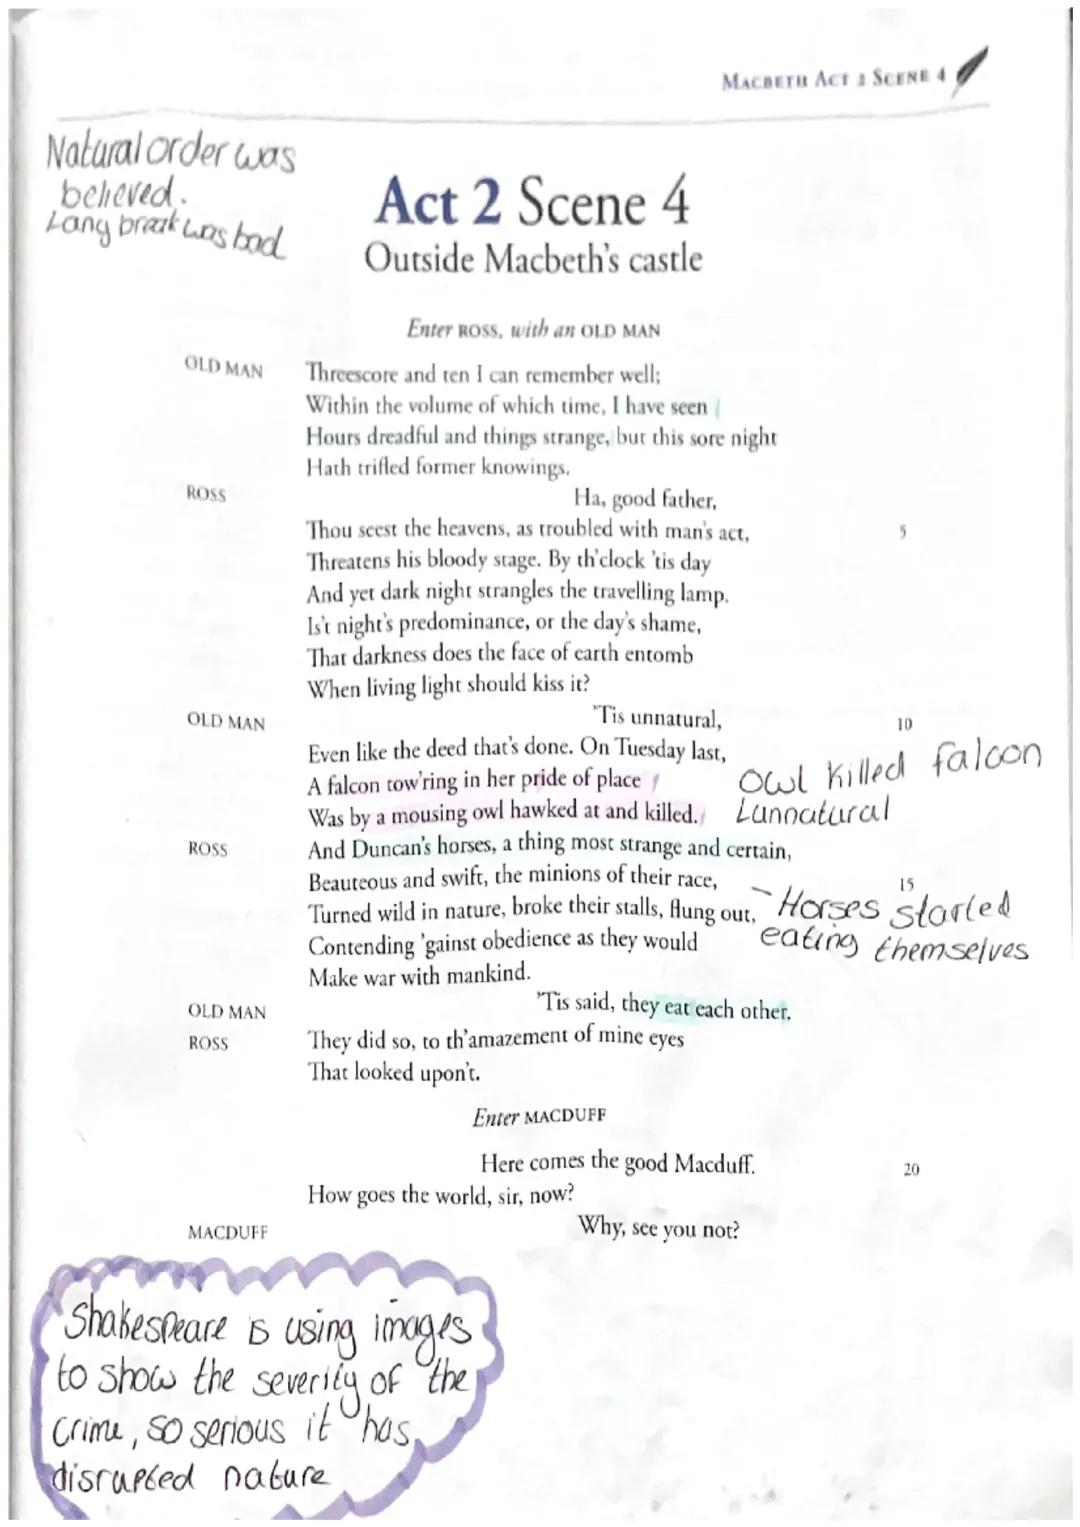 MACBETH ACT 2 SCENE 4
Natural order was
believed.
↳any break was bad
Act 2 Scene 4
Outside Macbeth's castle
Enter ROSS, with an OLD MAN
OLD MAN Threescore and ten I can remember well;
Within the volume of which time, I have seen
Hours dreadful and things strange, but this sore night
Hath trifled former knowings.
ROSS Ha, good father,
Thou seest the heavens, as troubled with man's act, 5
Threatens his bloody stage. By th'clock 'tis day
And yet dark night strangles the travelling lamp.
Is't night's predominance, or the day's shame,
That darkness does the face of earth entomb
When living light should kiss it?
OLD MAN 'Tis unnatural, 10
Even like the deed that's done. On Tuesday last,
A falcon tow'ring in her pride of place
Was by a mousing owl hawked at and killed.
owl killed falcon
↳unnatural
ROSS And Duncan's horses, a thing most strange and certain,
Beauteous and swift, the minions of their race, 15
Turned wild in nature, broke their stalls, flung out,
Contending 'gainst obedience as they would
Make war with mankind.
- Horses started
eating themselves
OLD MAN 'Tis said, they eat each other.
ROSS They did so, to th'amazement of mine eyes
That looked upon't.
Enter MACDUFF
Here comes the good Macduff. 20
How goes the world, sir, now?
MACDUFF Why, see you not?
Shakespeare is using images
to show the severity of the
crime, so serious it has
disrupted nature